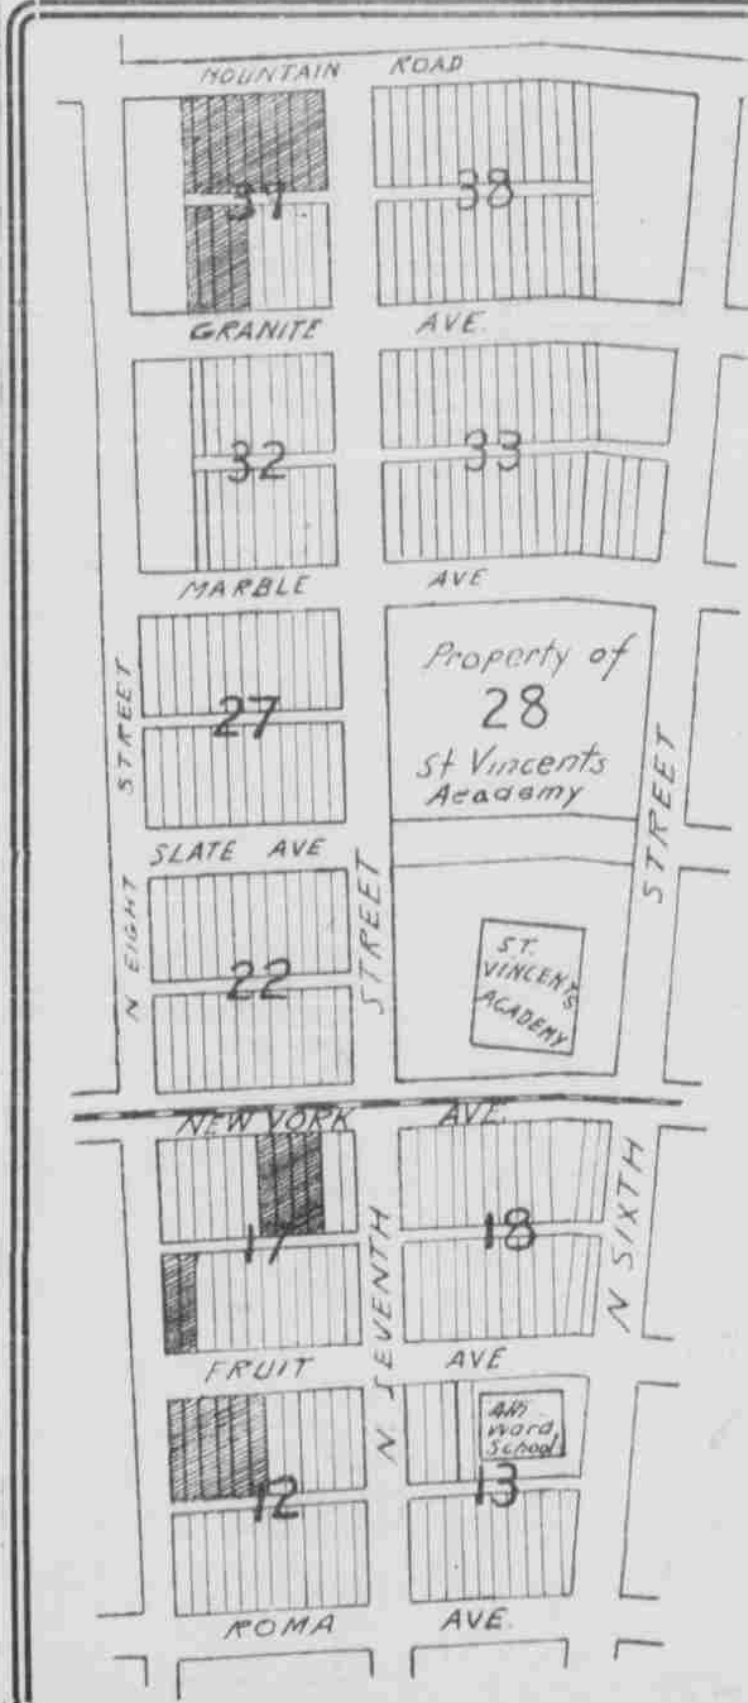 MOUNTAIN ROAD
37 38
GRANITE AVE.
32 33
MARBLE AVE
Property of
28
St Vincents
Academy
27
STREET
STREET
SLATE AVE
N EIGHT
STREET
22
ST.
VINCENTS
ACADEMY
NEW YORK AVE.
17 18
N SEVENTH
N SIXTH
FRUIT AVE
Ward
School
12 13
ROMA AVE.